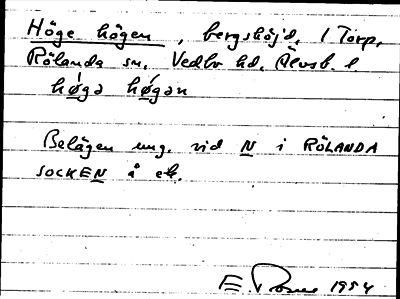 Höge högen, bergshöjd, 1 Torp,
Rölanda sn. Vedbo hd. Älvsb. l
hø̀gə hø̀gən
Belägen ung. vid N i RÖLANDA
SOCKEN å ek.
E. 1954